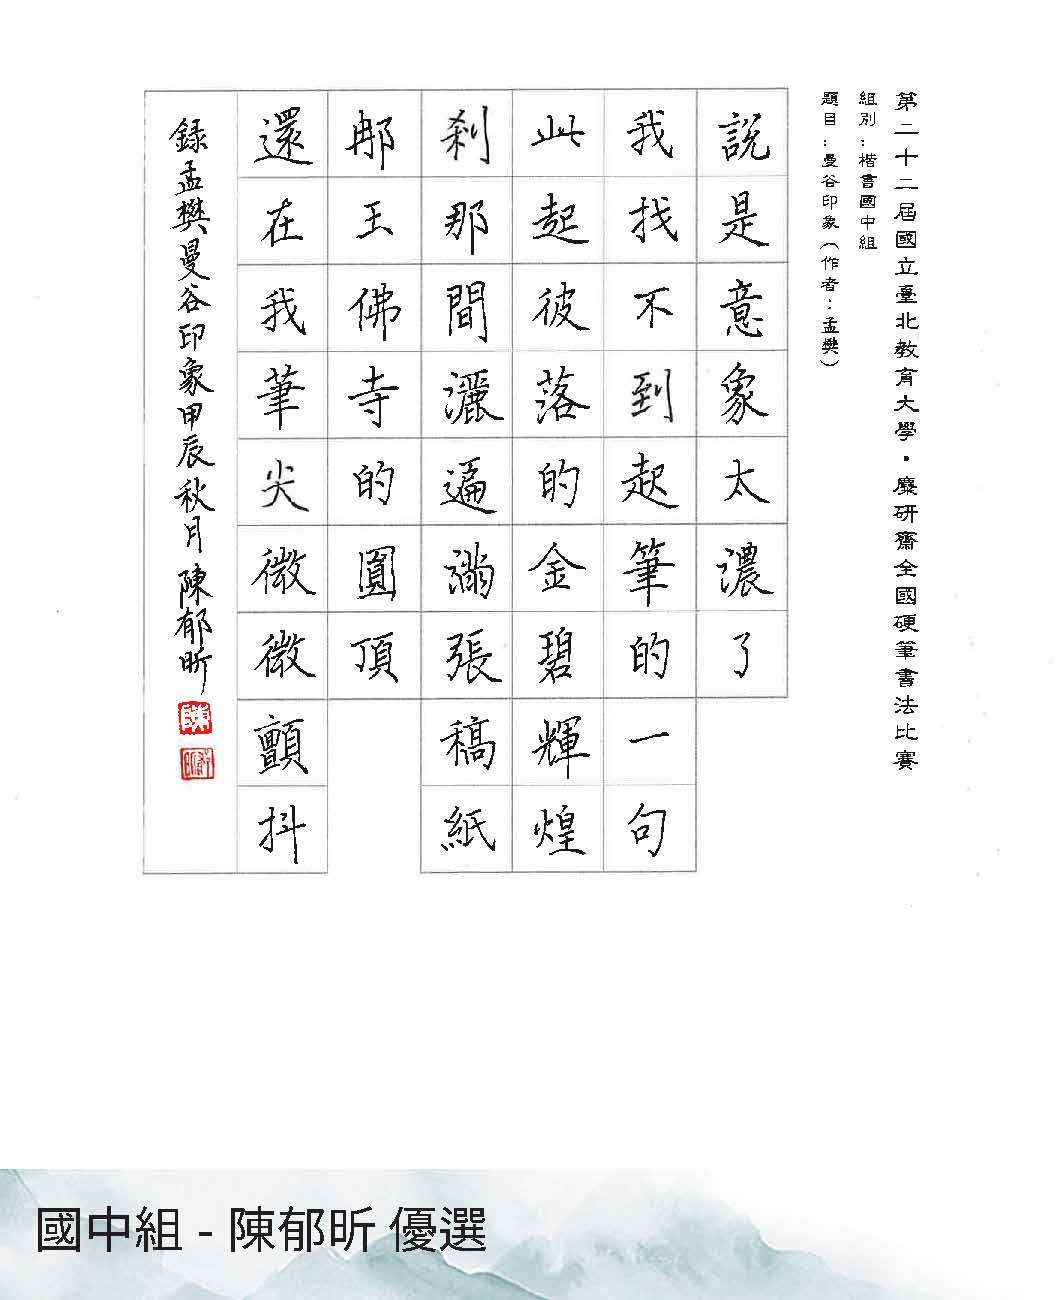 第二十二屆國立臺北教育大學・麋研齋全國硬筆書法比賽
組別：楷書國中組
題目：曼谷印象（作者：孟樊）
說是意象太濃了
我找不到起筆的一句
此起彼落的金碧輝煌
剎那間灑遍滿張稿紙
那玉佛寺的圓頂
還在我筆尖微微顫抖
錄孟樊曼谷印象甲辰秋月 陳郁昕
國中組 - 陳郁昕 優選